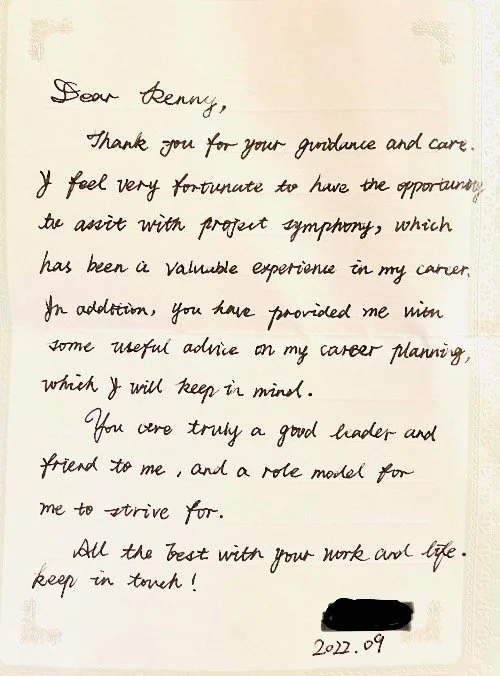 Dear Kenny,
Thank you for your guidance and care.
I feel very fortunate to have the opportunity
to assit with project symphony, which
has been a valuable experience in my career.
In addition, you have provided me with
some useful advice on my career planning,
which I will keep in mind.
You are truly a good leader and
friend to me, and a role model for
me to strive for.
All the best with your work and life.
keep in touch!
2022.09